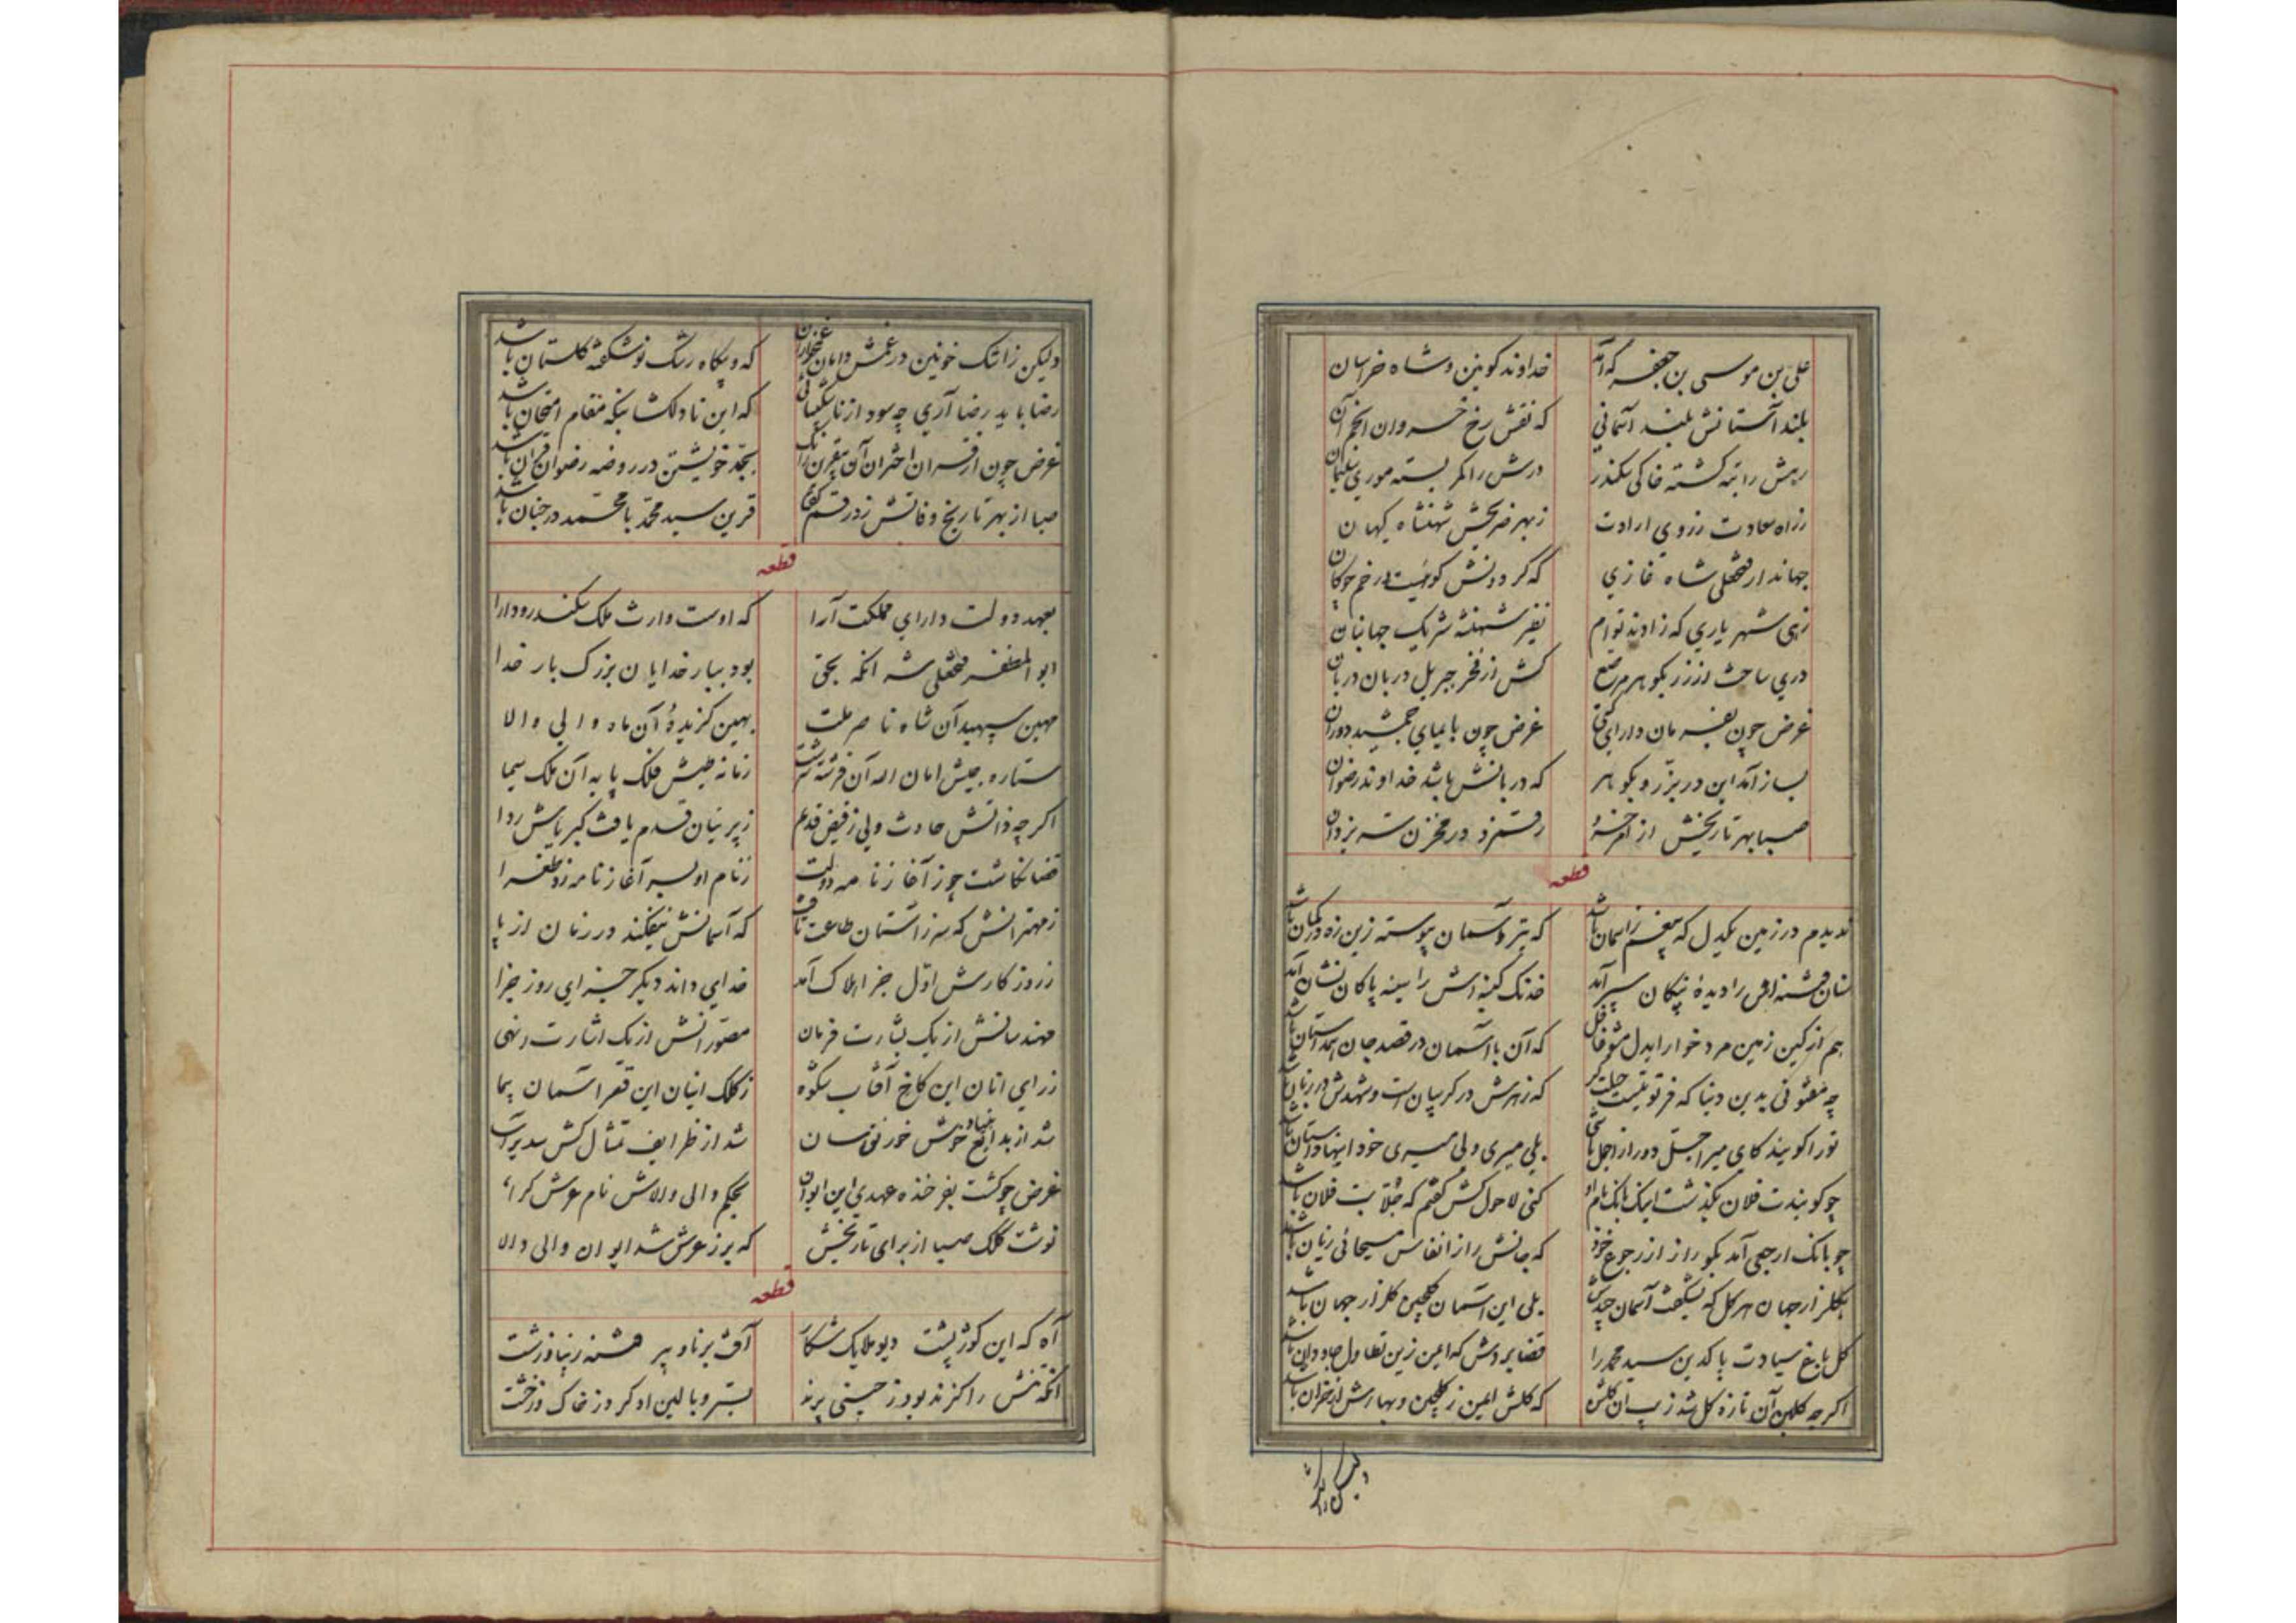 علی بن موسی بن جعفر که آمد خداوند کونین و شاه خراسان
بلند آستانش بلند آسمانی که نقش رخ خسروان انجم آن
رهش را تنه کشته خاکی سکندر درش را کمر بسته موری سلیمان
ز راه سعادت ز روی ارادت ز بهر ضریحش شهنشاه کیهان
جهاندار فتحعلی شاه غازی که کردونش کوئیست در خم چوکان
زهی شهریاری که زادند توام نفیر شهنشه شریک جهانبان
دری ساخت از زر بکوهر مرصع کش از فخر جبریل دربان دربان
غرض چون بفرمان دارای کیتی غرض چون بایمای جمشید دوران
بساز آمد این در بزر و بکوهر که دربانش باشد خداوند رضوان
صبا بهر تاریخش از امر خسرو رقم زد در مخزن سر یزدان
قطعه
ندیدم در زمین یکدل که بیغم ز اسمان باشد که تیر آسمان پیوسته زین زه در کمان باشد
سنان فتنه اش را دیدهٔ نیکان سپر آمد خدنک کینه اش را سینه پاکان نشان آمد
هم از کین زمین مرد خوار ایدل مشو غافل که آن با آسمان در قصد جان همداستان باشد
چه مفتونی بدین دنیا که فرتوتیست حیلت کر که زهرش در کریبان است و شهدش در زبان باشد
تو را کویند کای میر اجل دور از اجل باشی بلی میری ولی میری خود اینها داستان باشد
چو کویندت فلان بکذشت اینک بانک نام او کنی لاحول کش کفتم که جلابت فلان باشد
چو بانک ارجعی آمد بکو راز از رجوع خود که جانش را از انفاس مسیحائی زیان باشد
بکلزار جهان هر کل که بشکفت آسمان چیدش بلی این آسمان کلچین کلزار جهان باشد
کل باغ سیادت پاکدین سید محمد را قضا بردش که ایمن زین تطاول جاودان باشد
اکرچه کلبن آن تازه کل شد زیب ان کلشن که کلش ایمن ز کلچین و بهارش از خزان باشد
ولیکن ز اشک
ولیکن ز اشک خونین در غمش دامان غمخواران که و بیکاه رشک نوشکفته کلستان باشد
رضا باید رضا آری چه سود از ناشکیبائی که این نادلکشا بنکه مقام امتحان باشد
غرض چون از قران اختران آن بیقرین را بجد خویشتن در روضه رضوان قران باشد
صبا از بهر تاریخ وفاتش زد رقم کفتا قرین سید محمد با محمد در جنان باشد
قطعه
بعهد دولت دارای مملکت آرا که اوست وارث ملک سکندر و دارا
ابوالمظفر فتحعلی شه انکه بحق بود ببار خدایان بزرک بار خدا
مهین سپهبد آن شاه ناصر ملت بهین کزیدهٔ آن ماه والی والا
ستاره جیش امان اله آن فرشته سرشت زمانه طیش فلک پایه آن ملک سیما
اکرچه ذاتش حادث ولی ز فیض قدم زیرنیان قدم یافت کبریاش ردا
قضا نکاشت چو ز آغاز نامه دولت ز نام او بسر آغاز نامه زد طغرا
ز مهترانش که سر ز آستان طاعت تافت که آسمانش نیفکند در زمان از پا
ز روز کارش اول جز اهلاک آمد خدای داند دیکر جزای روز جزا
مهندسانش از یک بشارت فرمان مصورانش از یک اشارت نهی
ز رای انان این کاخ آفتاب شکوه ز کلک اینان این قصر اسمان پیما
شد از بدایع بنیاد خوش خورنق سان شد از ظرایف تمثال کش سدیر آسا
غرض چو کشت بفرخنده عهدی این ایوان بحکم والی والاش نام عرش کرا
نوشت کلک صبا از برای تاریخش که برز عرش شد ایوان والی والا
قطعه
آه که این کوژپشت دیو ملایک شکار آفت برنا و پیر فتنه زیبا و زشت
انکه تنش را کزند بود ز چینی پرند بستر و بالین او کرد ز خاک و ز خشت